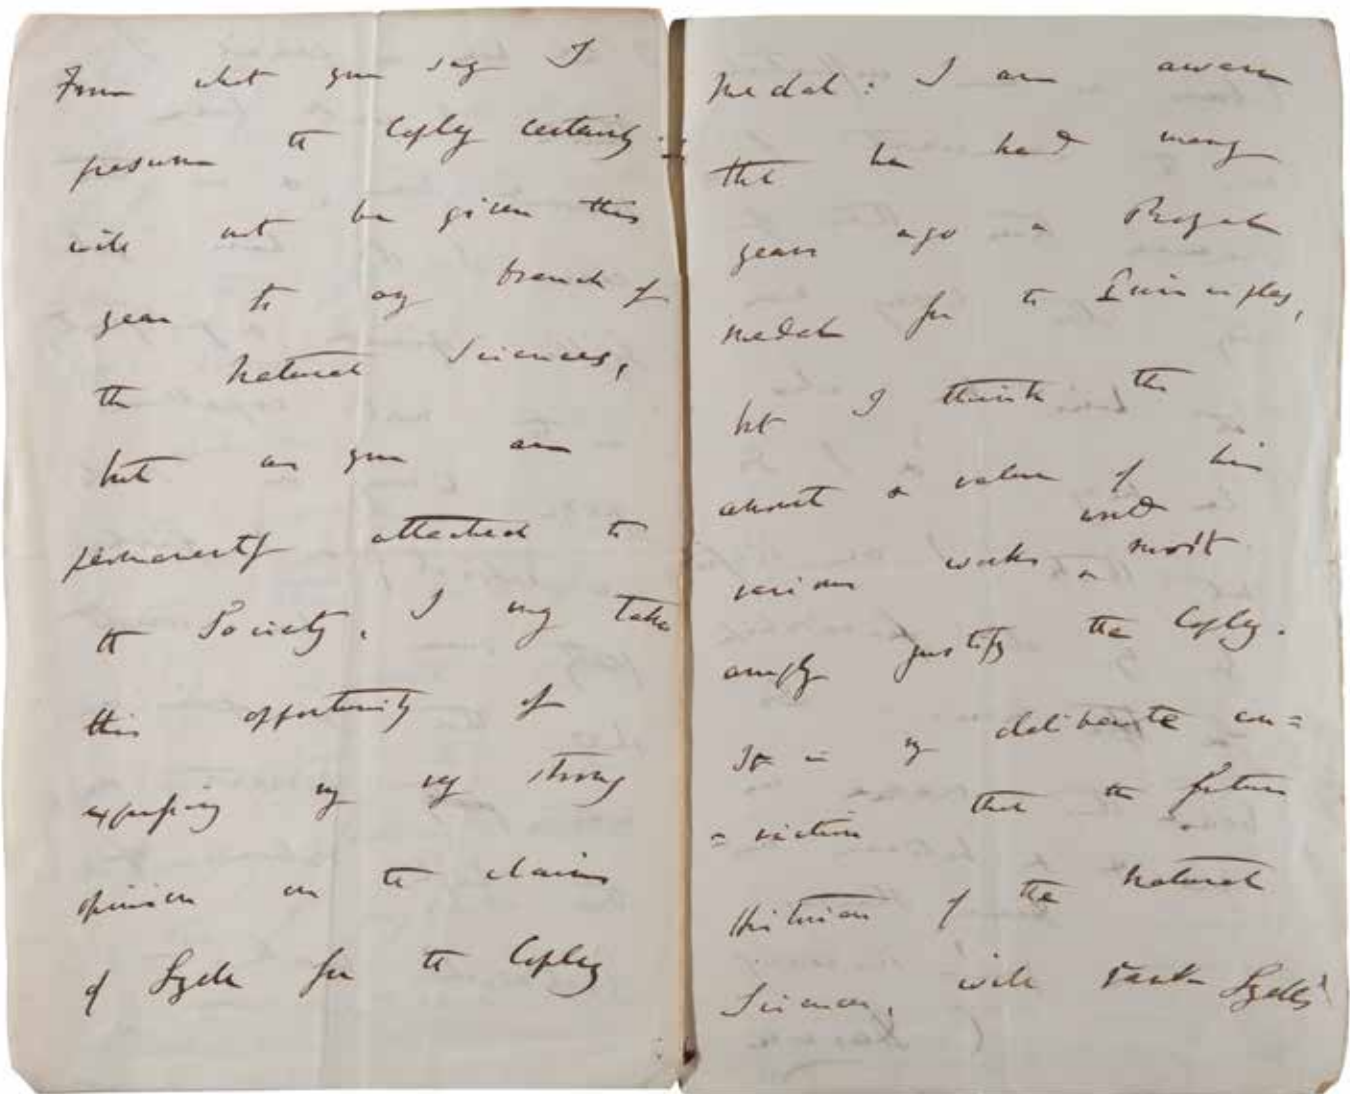 From what you say I
presume the Copley certainly
will not be given this
year to any branch of
the Natural Sciences,
but as you are
permanently attached to
the Society, I may take
this opportunity of
expressing my strong
opinion on the claims
of Lyell for the Copley
Medal: I am aware
that he had many
years ago a Royal
Medal for the Principles,
but I think the
amount & value of his
various works would most
amply justify the Copley.
It is my deliberate con=
=viction that the future
Historian of the Natural
Sciences, will rank Lyell's